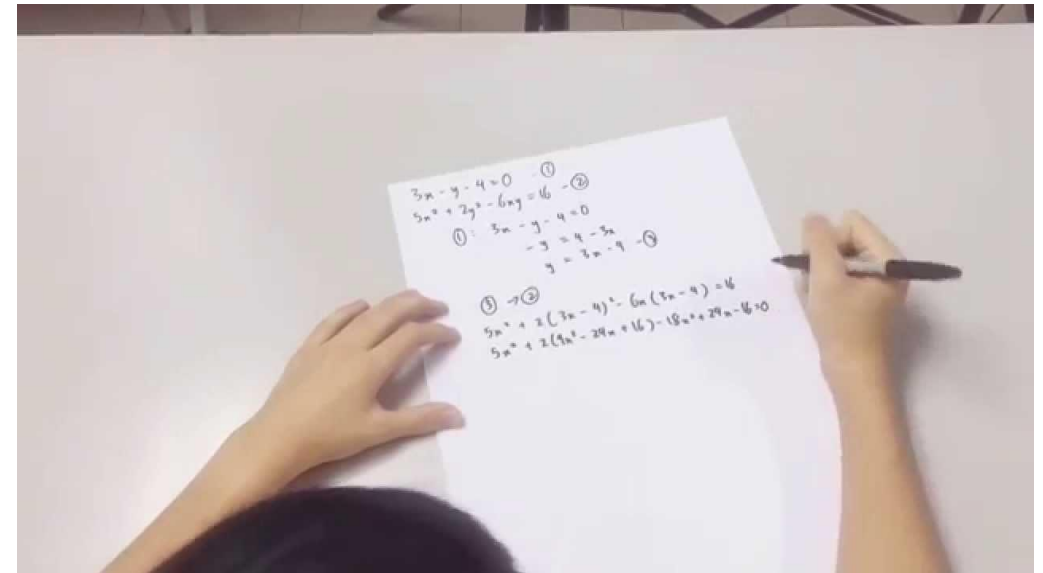 3x - y - 4 = 0 - ①
5x² + 2y² - 6xy = 16 - ②
①: 3x - y - 4 = 0
- y = 4 - 3x
y = 3x - 4 - ③
③ → ②
5x² + 2(3x - 4)² - 6x(3x - 4) = 16
5x² + 2(9x² - 24x + 16) - 18x² + 24x - 16 = 0